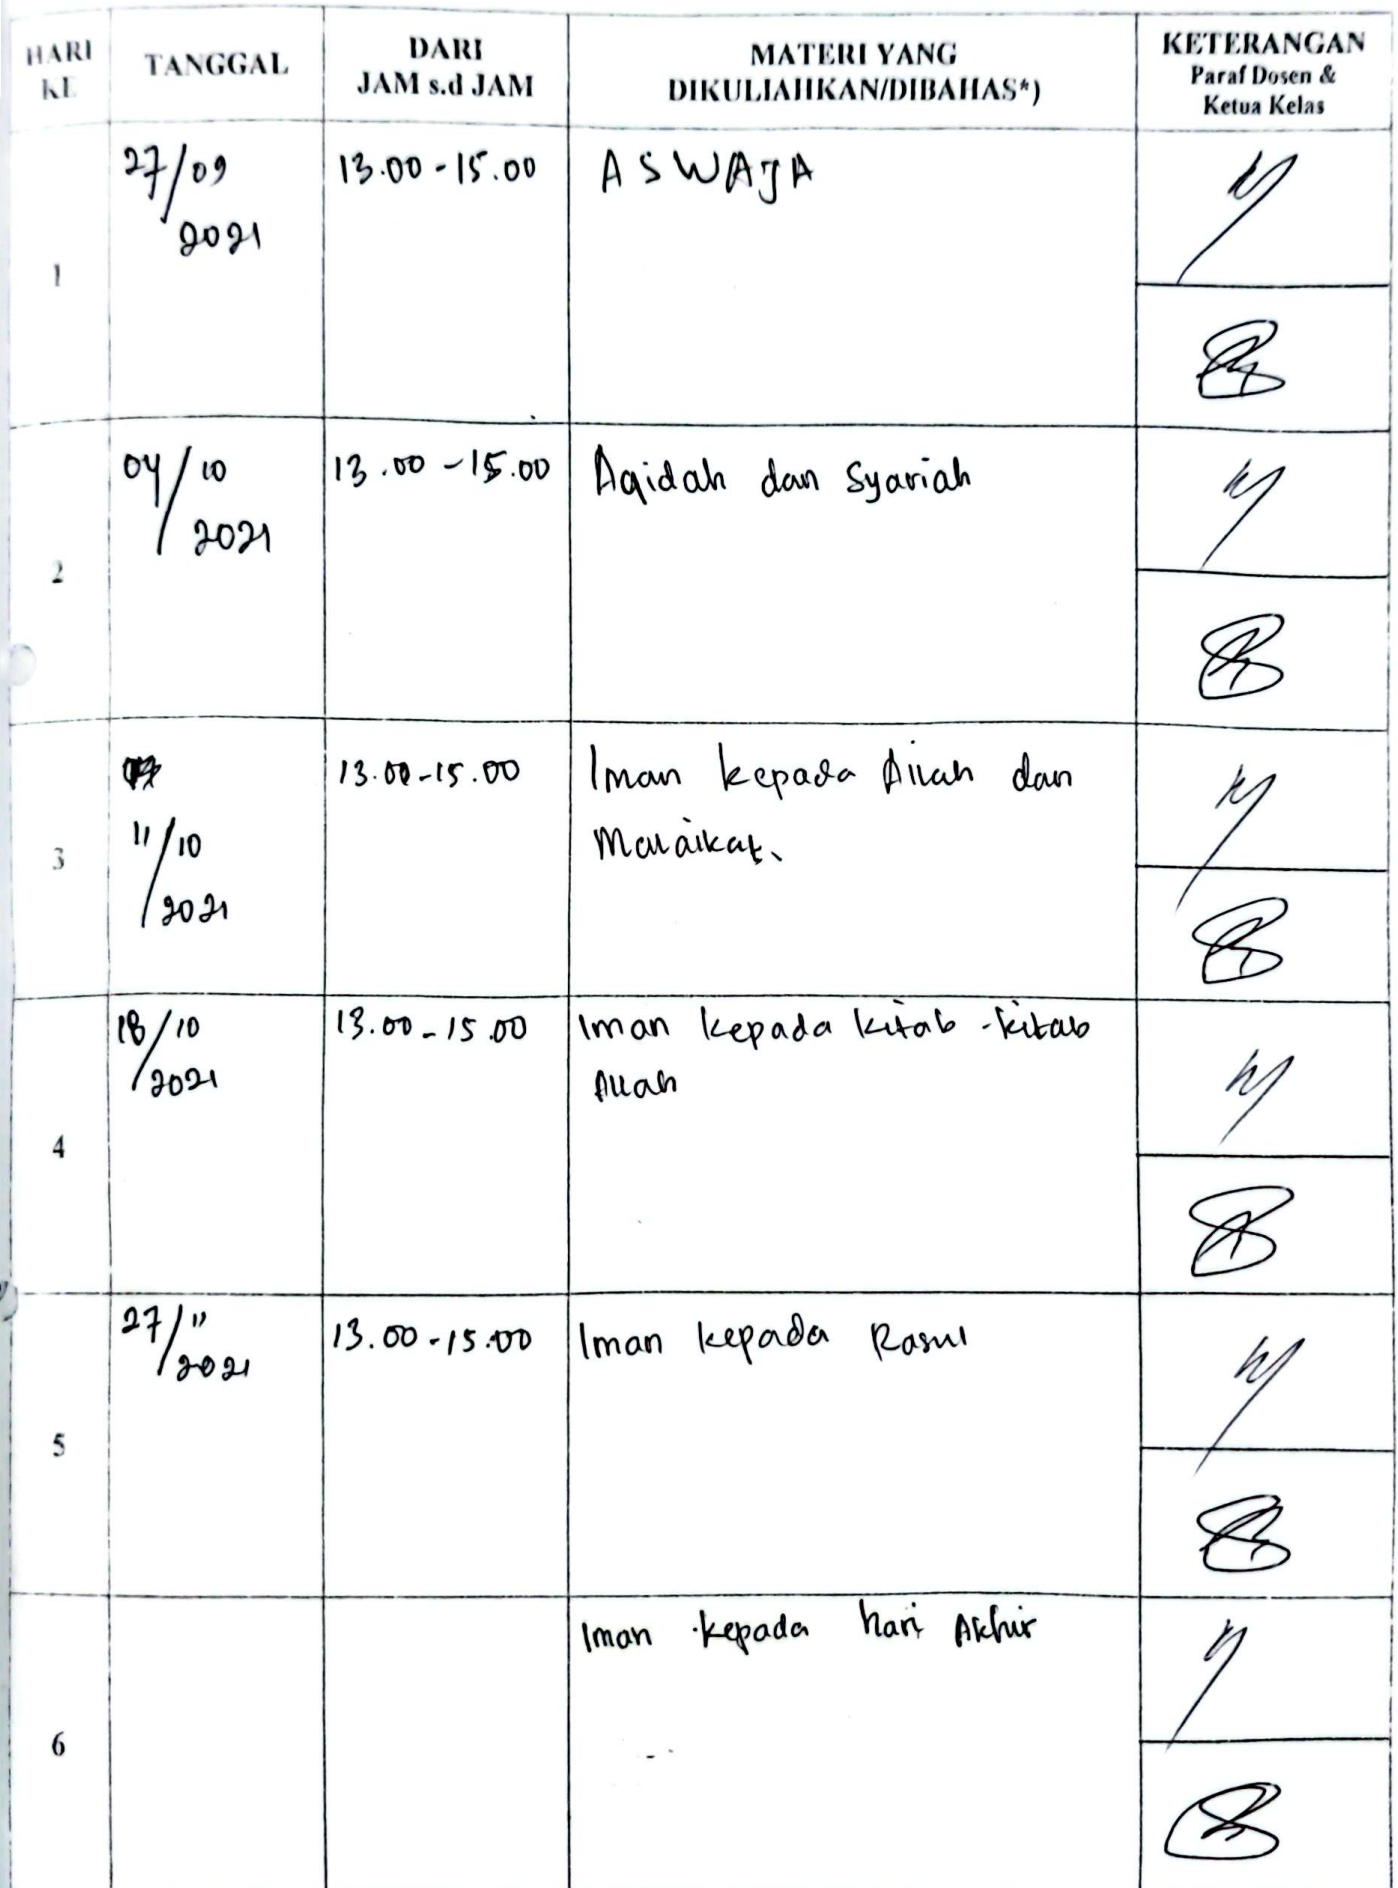 HARI KE TANGGAL DARI JAM s.d JAM MATERI YANG DIKULIAHKAN/DIBAHAS*) KETERANGAN Paraf Dosen & Ketua Kelas
1 27/09 2021 13.00 - 15.00 ASWAJA
2 04/10 2021 13.00 - 15.00 Aqidah dan Syariah
3 11/10 2021 13.00 - 15.00 Iman kepada Allah dan
Malaikat
4 18/10 2021 13.00 - 15.00 Iman kepada kitab - kitab
Allah
5 27/11 2021 13.00 - 15.00 Iman kepada Rasul
6 Iman kepada hari Akhir